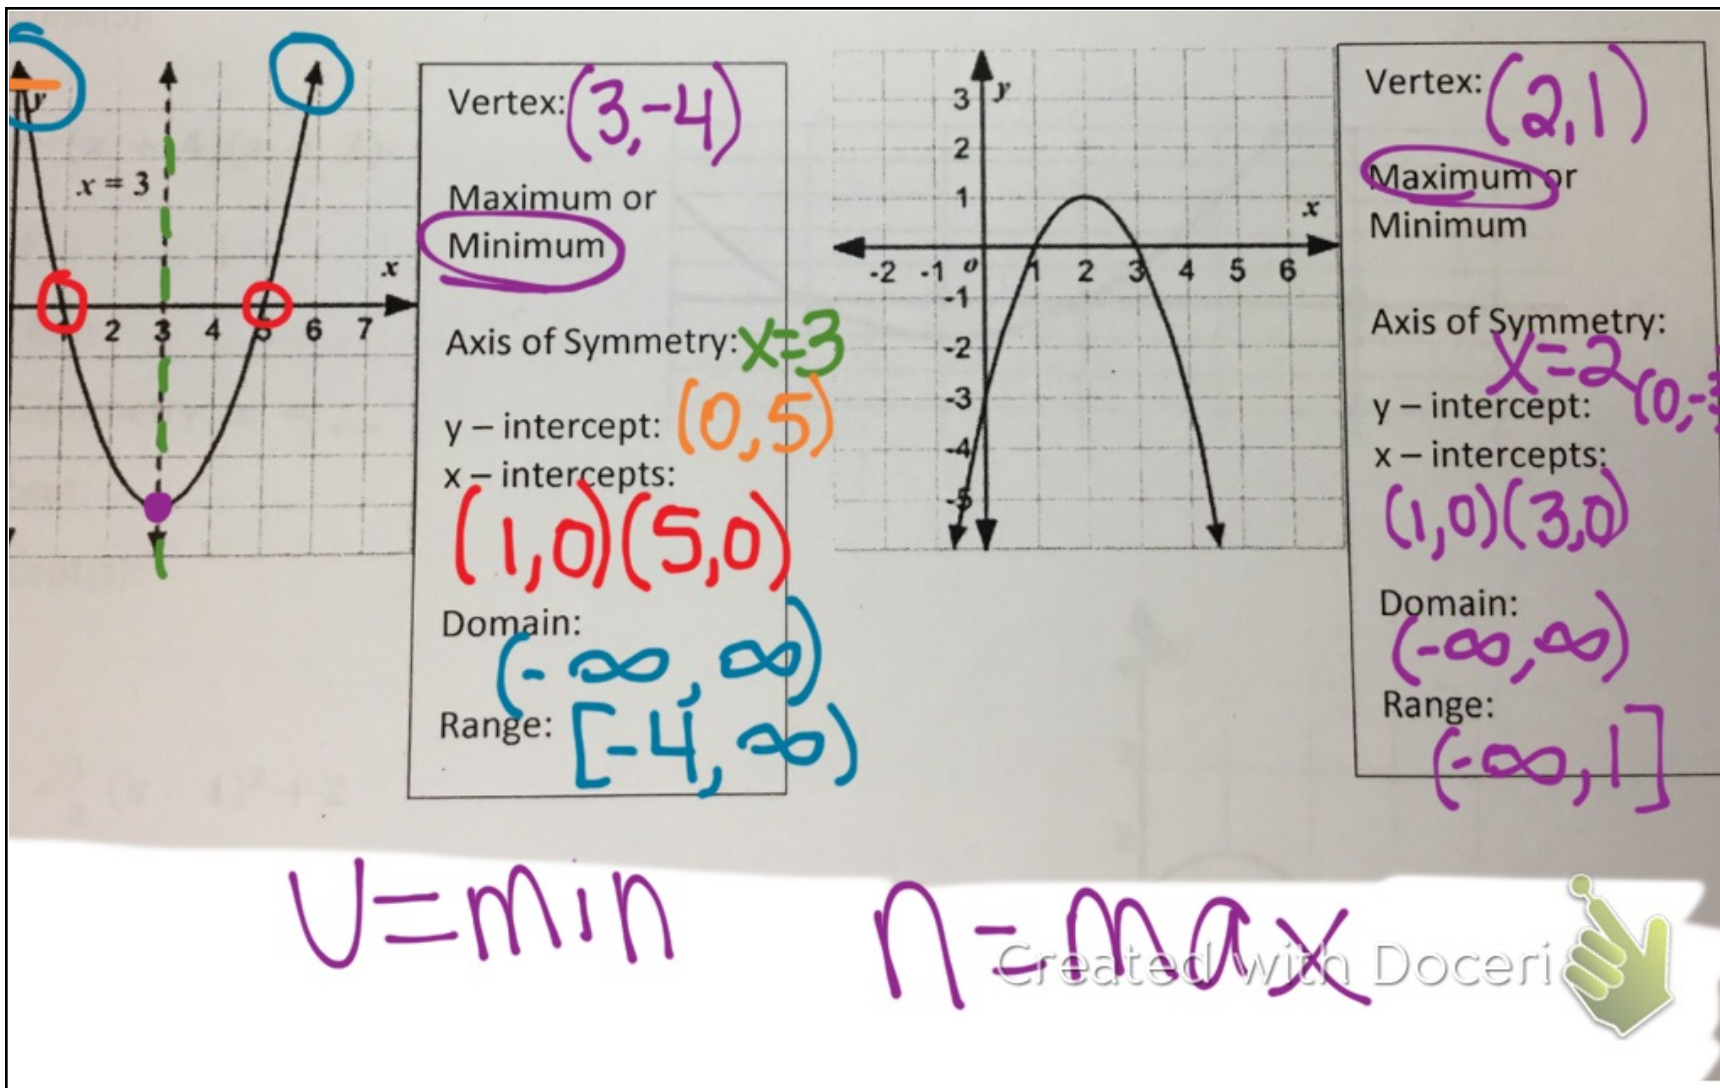 y
x = 3
x
2 3 4 5 6 7
Vertex: (3,-4)
Maximum or
Minimum
Axis of Symmetry: x=3
y – intercept: (0,5)
x – intercepts:
(1,0)(5,0)
Domain:
(-∞,∞)
Range: [-4,∞)
y
3
2
1
x
-2 -1 o 1 2 3 4 5 6
-1
-2
-3
-4
-5
Vertex: (2,1)
Maximum or
Minimum
Axis of Symmetry:
x=2
y – intercept: (0,-3
x – intercepts:
(1,0)(3,0)
Domain:
(-∞,∞)
Range:
(-∞,1]
U=min
n=max
Created with Doceri